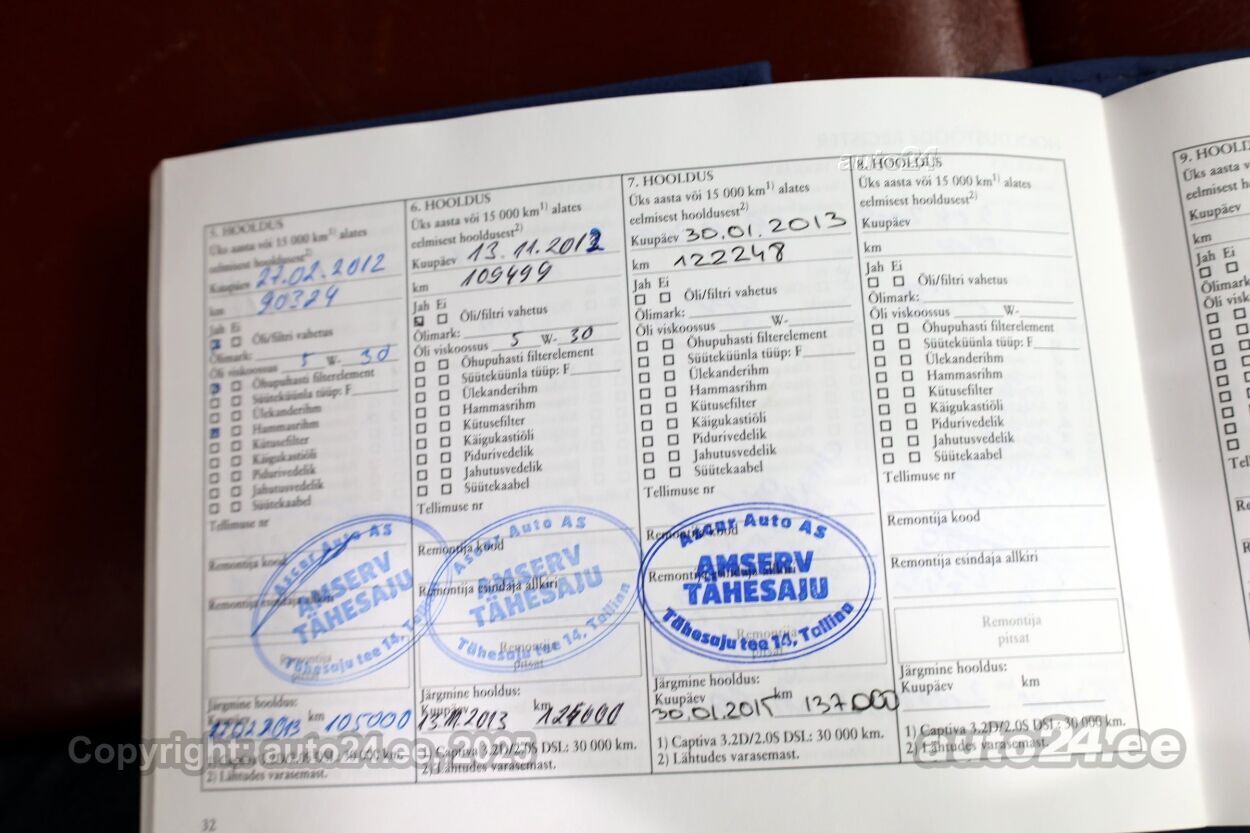 auto24
5. HOOLDUS
Üks aasta või 15 000 km¹⁾ alates
eelmisest hooldusest²⁾
Kuupäev 27.02.2012
km 90324
Jah Ei
Õli/filtri vahetus
Õlimark:
Õli viskoossus 5 W- 30
Õhupuhasti filterelement
Süüteküünla tüüp: F
Ülekanderihm
Hammasrihm
Kütusefilter
Käigukastiõli
Pidurivedelik
Jahutusvedelik
Süütekaabel
Tellimuse nr
Remontija kood
Remontija esindaja allkiri
Ascar Auto AS
AMSERV
TÄHESAJU
Tähesaju tee 14, Tallinn
Remontija
pitsat
Järgmine hooldus:
Kuupäev km
2013 105000
1) Captiva 3.2D/2.0S DSL: 30 000 km.
2) Lähtudes varasemast.
6. HOOLDUS
Üks aasta või 15 000 km¹⁾ alates
eelmisest hooldusest²⁾
Kuupäev 13.11.2012
km 109499
Jah Ei
Õli/filtri vahetus
Õlimark:
Õli viskoossus 5 W- 30
Õhupuhasti filterelement
Süüteküünla tüüp: F
Ülekanderihm
Hammasrihm
Kütusefilter
Käigukastiõli
Pidurivedelik
Jahutusvedelik
Süütekaabel
Tellimuse nr
Remontija kood
Remontija esindaja allkiri
Ascar Auto AS
AMSERV
TÄHESAJU
Tähesaju tee 14, Tallinn
Remontija
pitsat
Järgmine hooldus:
Kuupäev km
13.11.2013
1) Captiva 3.2D/2.0S DSL: 30 000 km.
2) Lähtudes varasemast.
7. HOOLDUS
Üks aasta või 15 000 km¹⁾ alates
eelmisest hooldusest²⁾
Kuupäev 30.01.2013
km 122248
Jah Ei
Õli/filtri vahetus
Õlimark:
Õli viskoossus W-
Õhupuhasti filterelement
Süüteküünla tüüp: F
Ülekanderihm
Hammasrihm
Kütusefilter
Käigukastiõli
Pidurivedelik
Jahutusvedelik
Süütekaabel
Tellimuse nr
Remontija kood
Remontija esindaja allkiri
Ascar Auto AS
AMSERV
TÄHESAJU
Tähesaju tee 14, Tallinn
Remontija
pitsat
Järgmine hooldus:
Kuupäev km
30.01.2015 137000
1) Captiva 3.2D/2.0S DSL: 30 000 km.
2) Lähtudes varasemast.
8. HOOLDUS
Üks aasta või 15 000 km¹⁾ alates
eelmisest hooldusest²⁾
Kuupäev
km
Jah Ei
Õli/filtri vahetus
Õlimark:
Õli viskoossus W-
Õhupuhasti filterelement
Süüteküünla tüüp: F
Ülekanderihm
Hammasrihm
Kütusefilter
Käigukastiõli
Pidurivedelik
Jahutusvedelik
Süütekaabel
Tellimuse nr
Remontija kood
Remontija esindaja allkiri
Remontija
pitsat
Järgmine hooldus:
Kuupäev km
1) Captiva 3.2D/2.0S DSL: 30 000 km.
2) Lähtudes varasemast.
32
9. HOOLD
Üks aasta või
eelmisest h
Kuupäev
km
Jah Ei
Õlimark
Õli visk
Tel
Copyright: auto24.ee, 2025
auto24.ee